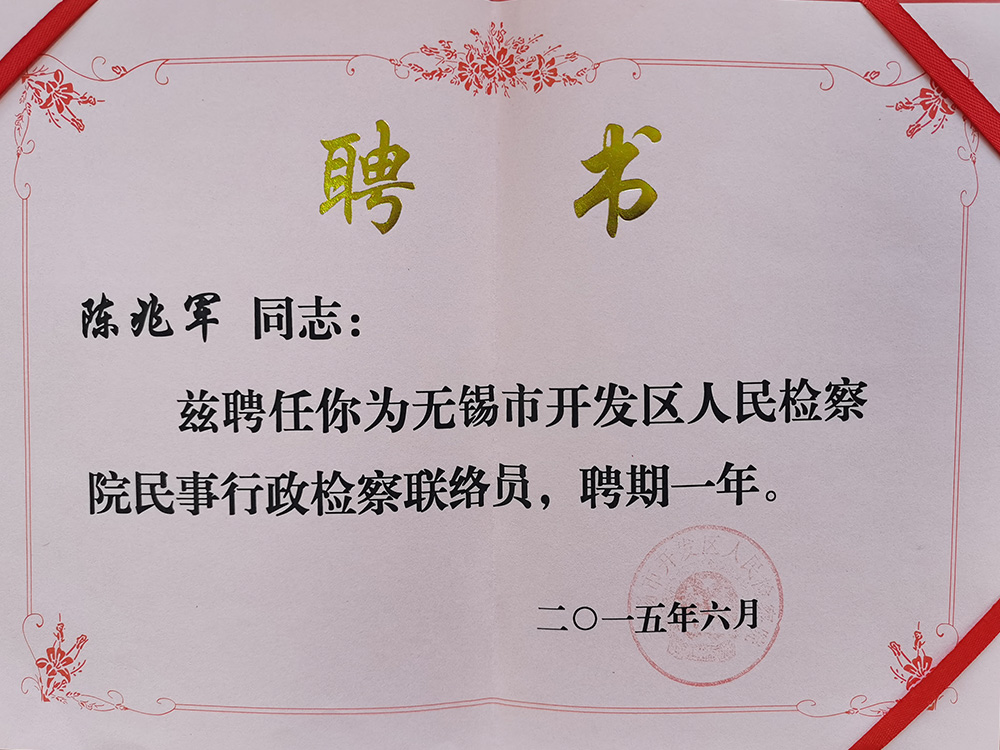 聘书
陈兆军 同志：
兹聘任你为无锡市开发区人民检察
院民事行政检察联络员，聘期一年。
二〇一五年六月
市开发区人民